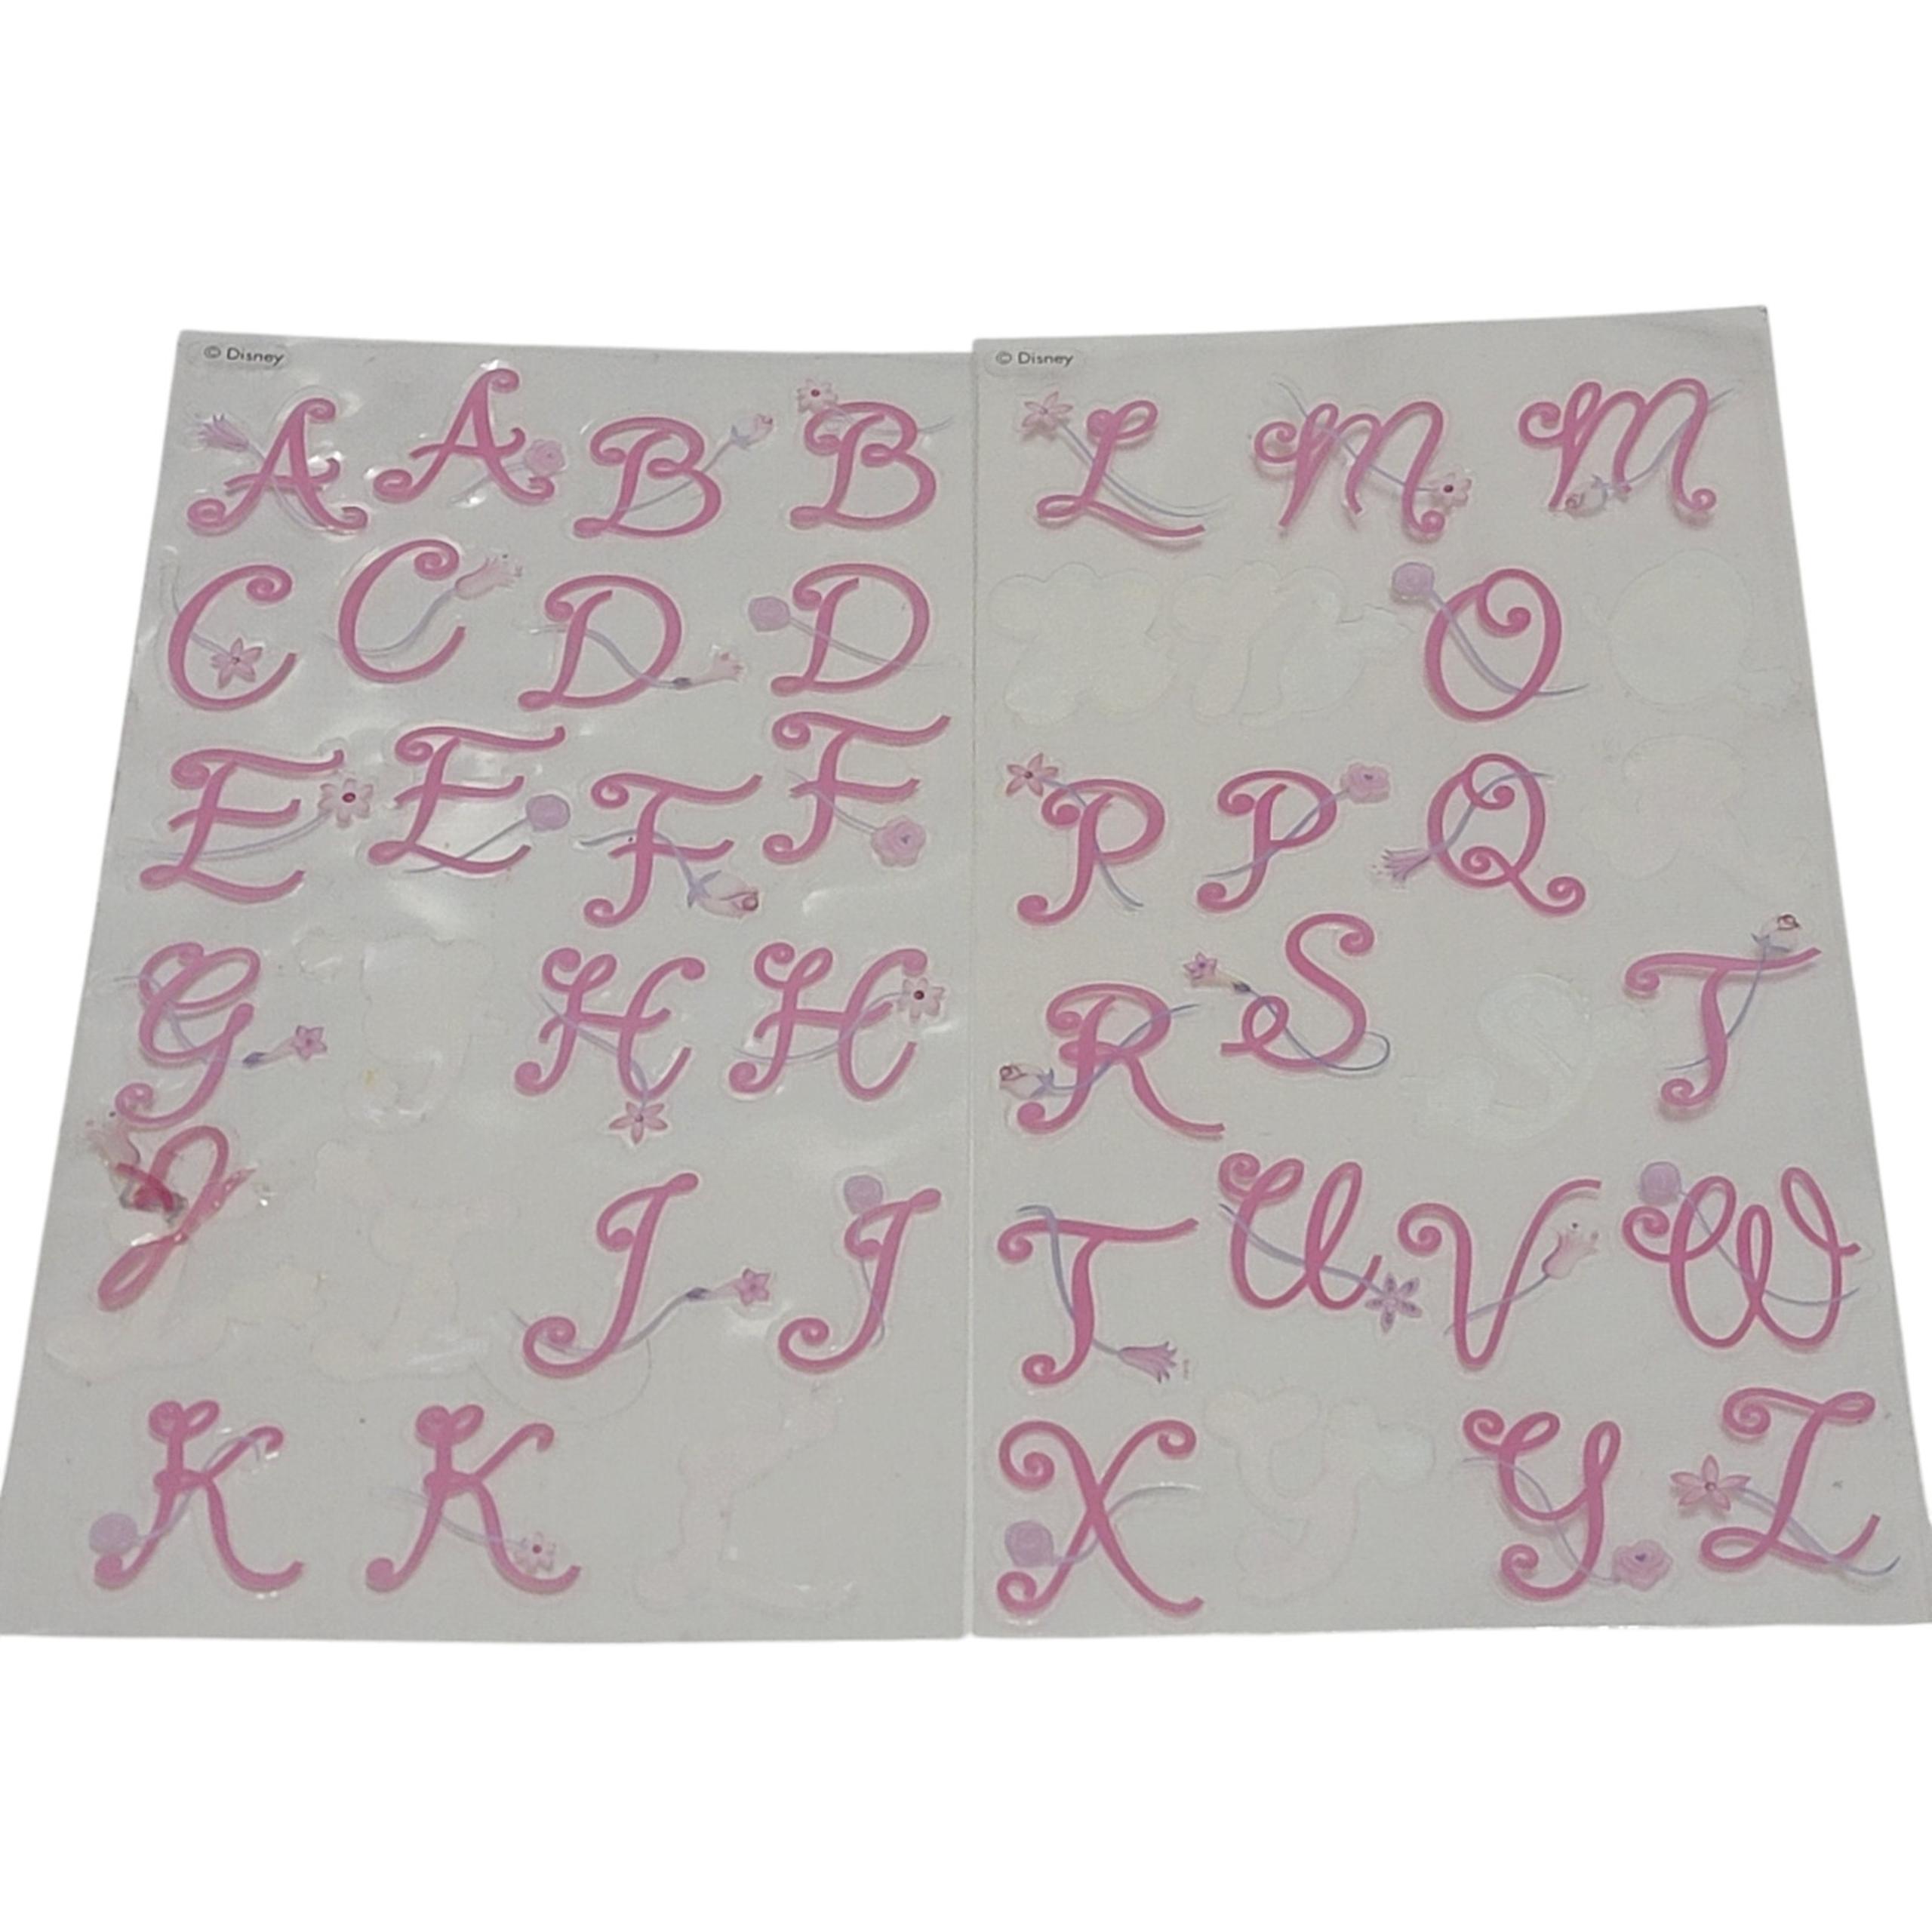 © Disney
A A B B
C C D D
E E F F
G H H
I J J
K K
© Disney
L M M
O
P P Q
R S T
T U V W
X Y Z